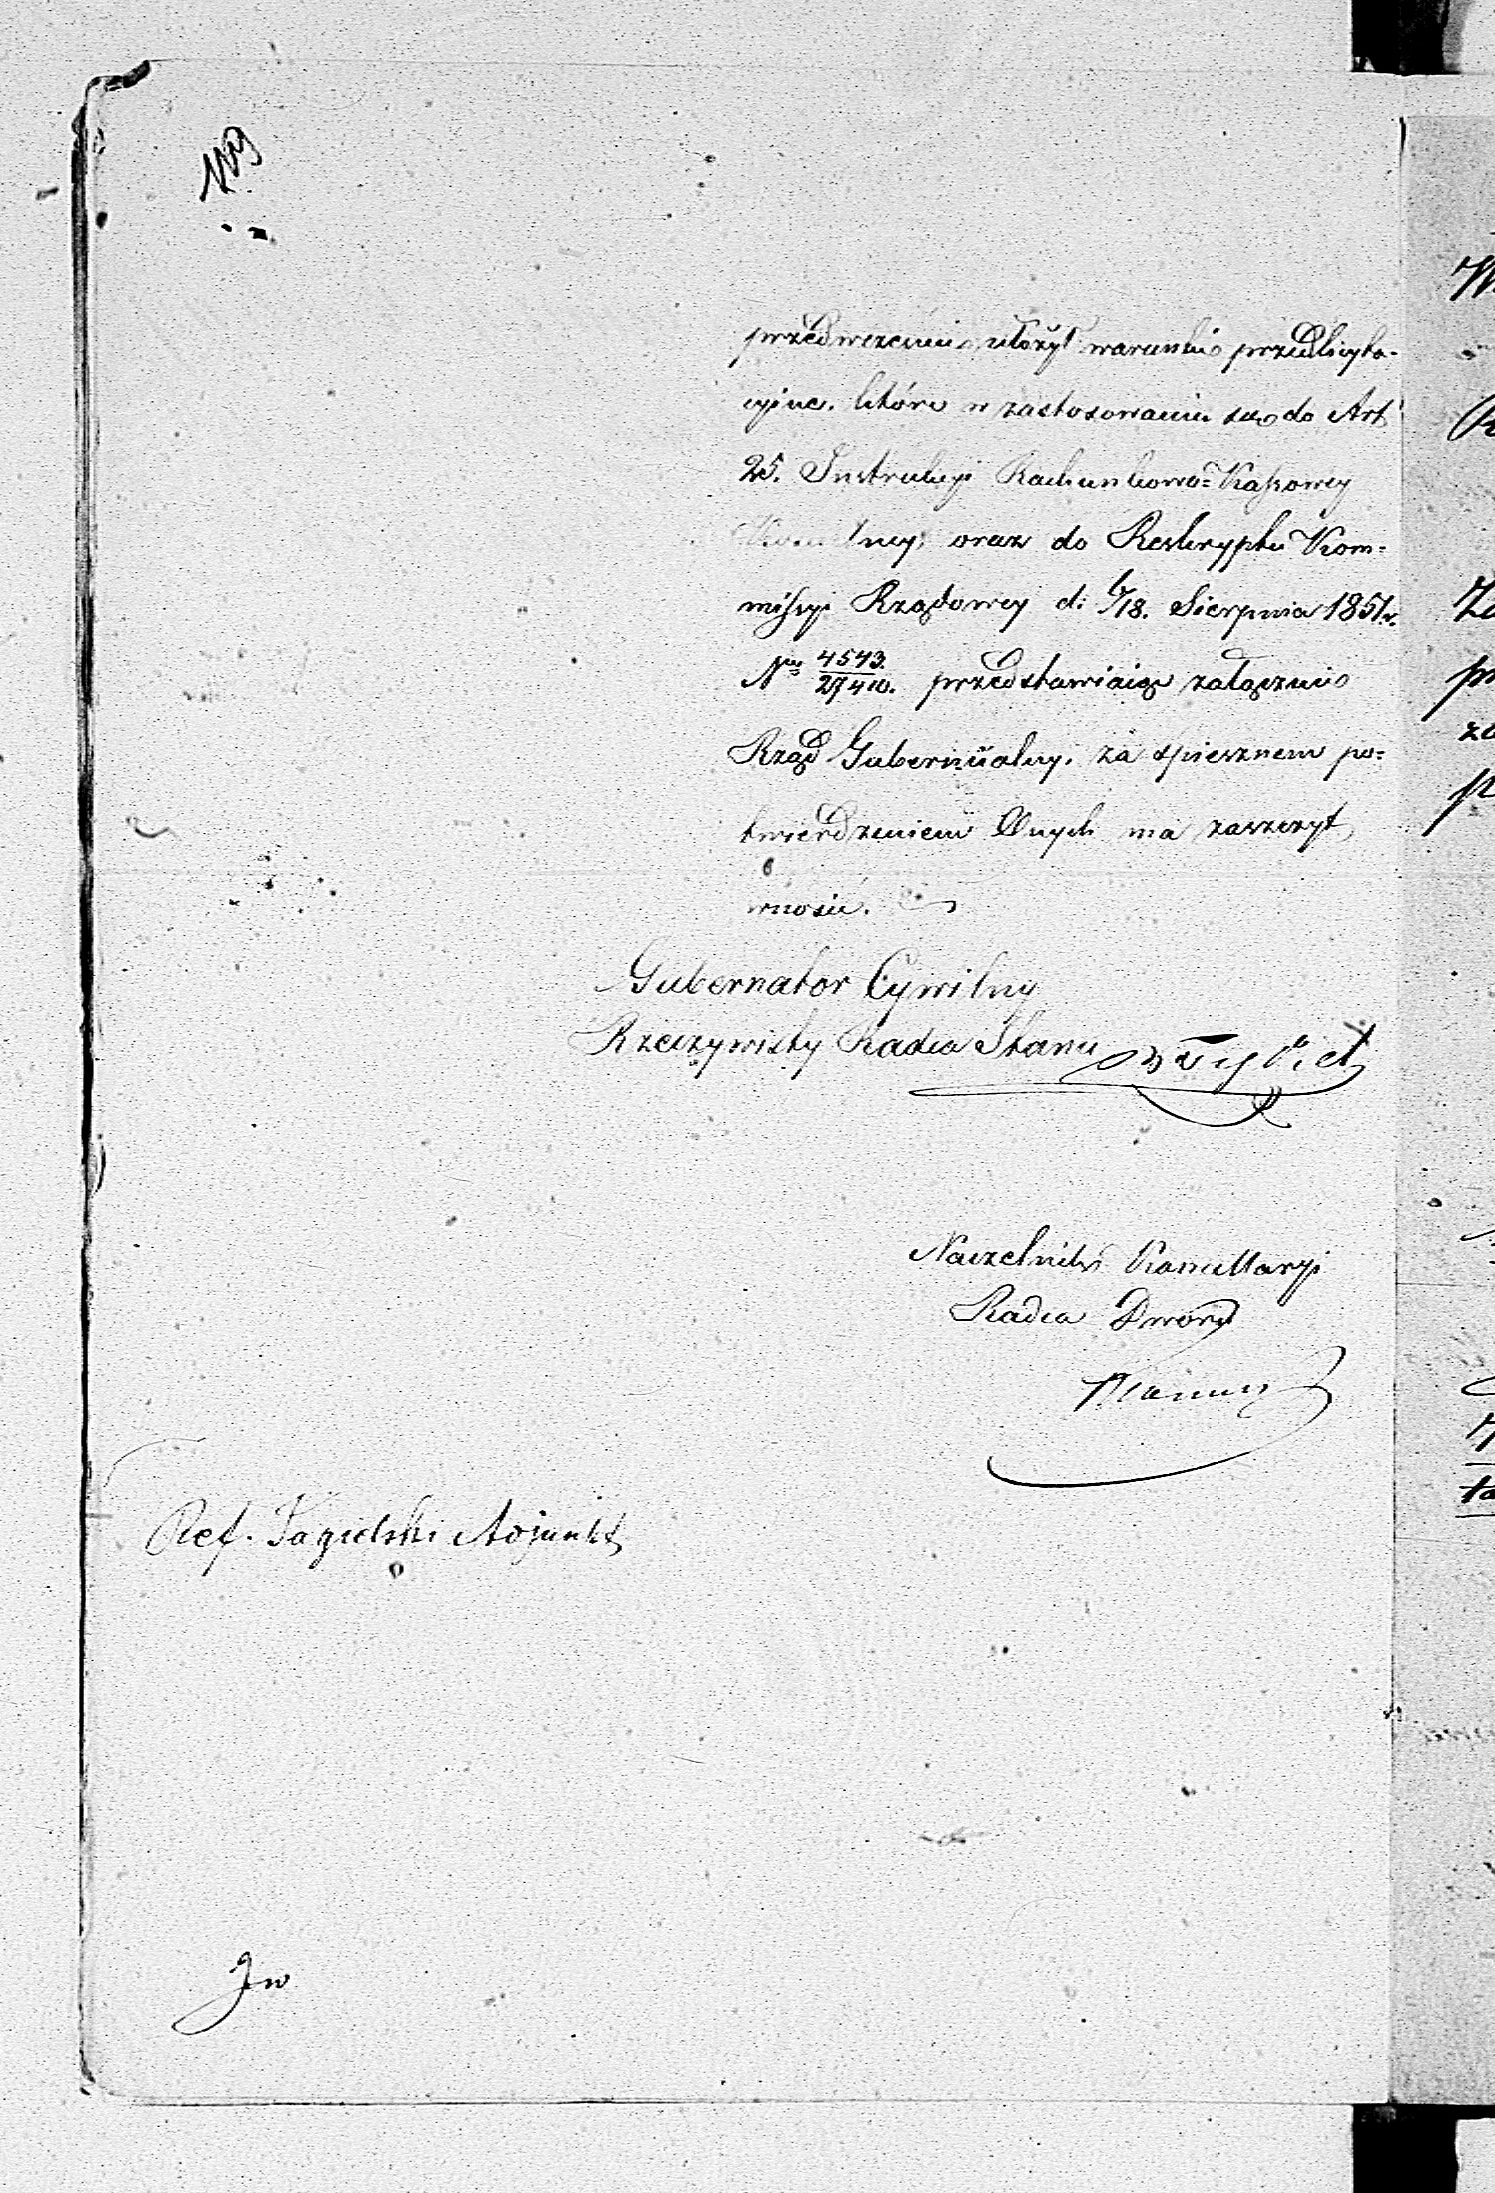 119
przedwcześnie ułożył warunki przedlicyta-
cyjne, które w zastosowaniu się do Art.
25. Instrukcyi Rachunkowo-Kassowey
oraz do Reskryptu Kom-
missyi Rządowey d: 6/18. Sierpnia 1851 r.
Nro 4543./27410. przedstawiaiąc załącznie
Rząd Gubernialny, za spiesznem po-
twierdzeniem Onych ma zaszczyt
wnosić.
Gubernator Cywilny
Rzeczywisty Radca Stanu
Naczelnik Kancellaryi
Radca Dworu
Ref. Adjunkt